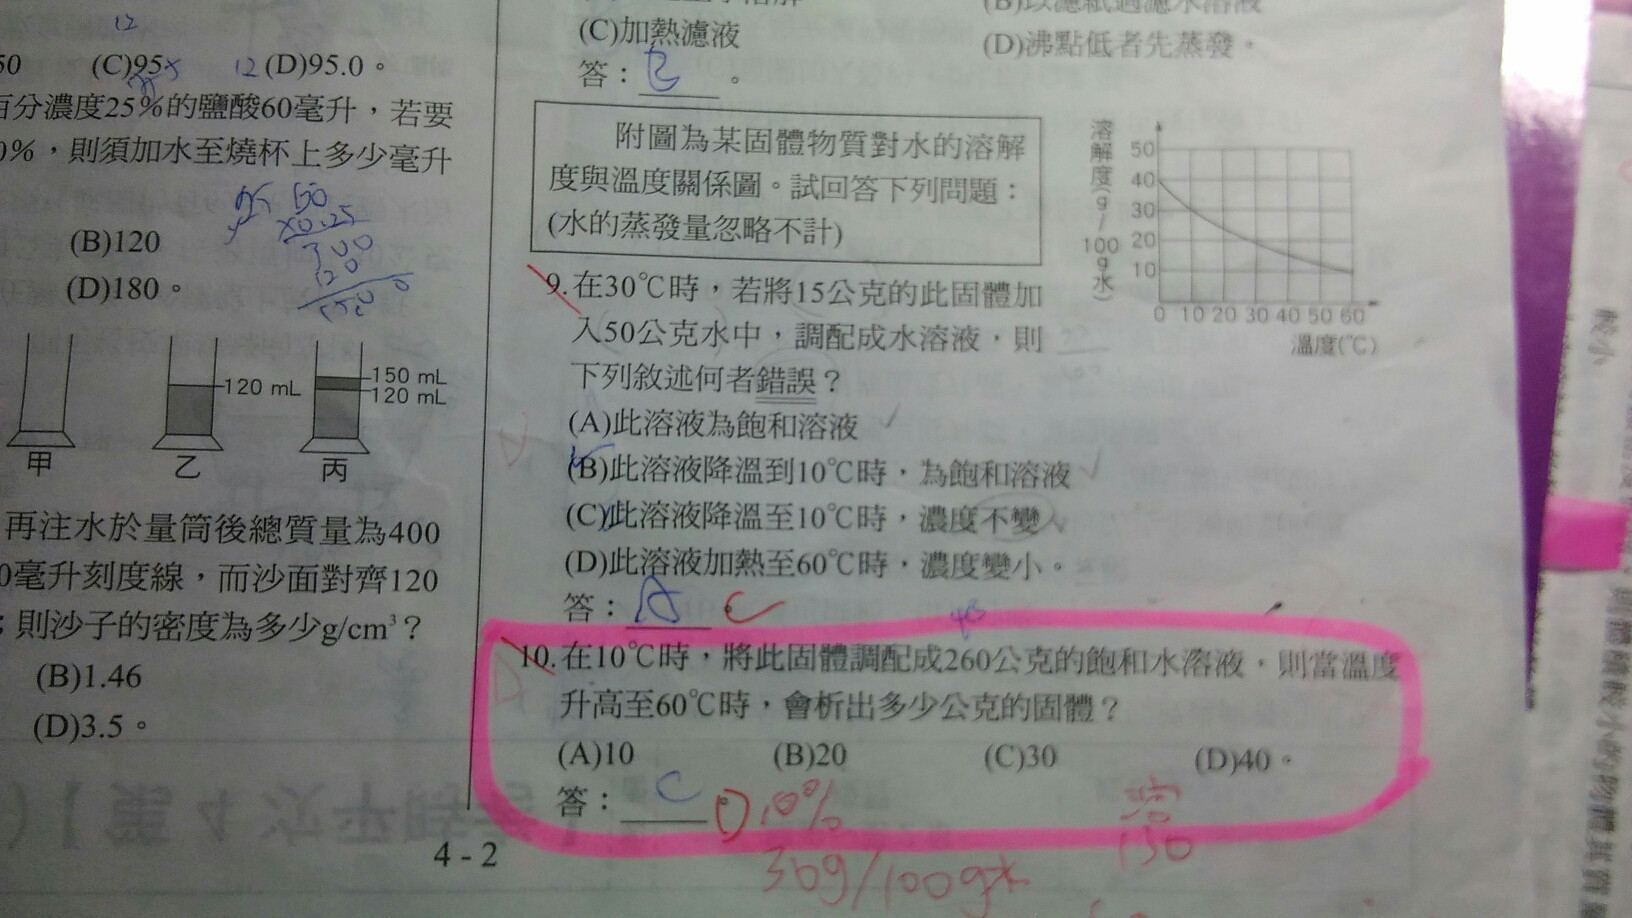 12
50 (C)95 12 (D)95.0。
百分濃度25%的鹽酸60毫升，若要
0%，則須加水至燒杯上多少毫升
60
×0.25
300
120
(B)120
(D)180。
120 mL
150 mL
120 mL
甲 乙 丙
再注水於量筒後總質量為400
0毫升刻度線，而沙面對齊120
；則沙子的密度為多少g/cm³？
(B)1.46
(D)3.5。
4-2
(C)加熱濾液
(D)沸點低者先蒸發。
答：B。
附圖為某固體物質對水的溶解
度與溫度關係圖。試回答下列問題：
(水的蒸發量忽略不計)
溶解度(g/100g水)
50
40
30
20
10
0 10 20 30 40 50 60
溫度(℃)
9.在30℃時，若將15公克的此固體加
入50公克水中，調配成水溶液，則
下列敘述何者錯誤？
(A)此溶液為飽和溶液
(B)此溶液降溫到10℃時，為飽和溶液
(C)此溶液降溫至10℃時，濃度不變
(D)此溶液加熱至60℃時，濃度變小。
答：A。
10.在10℃時，將此固體調配成260公克的飽和水溶液，則當溫度
升高至60℃時，會析出多少公克的固體？
(A)10 (B)20 (C)30 (D)40。
答：C。
D 10%
30g/100g水
溶
130
較小